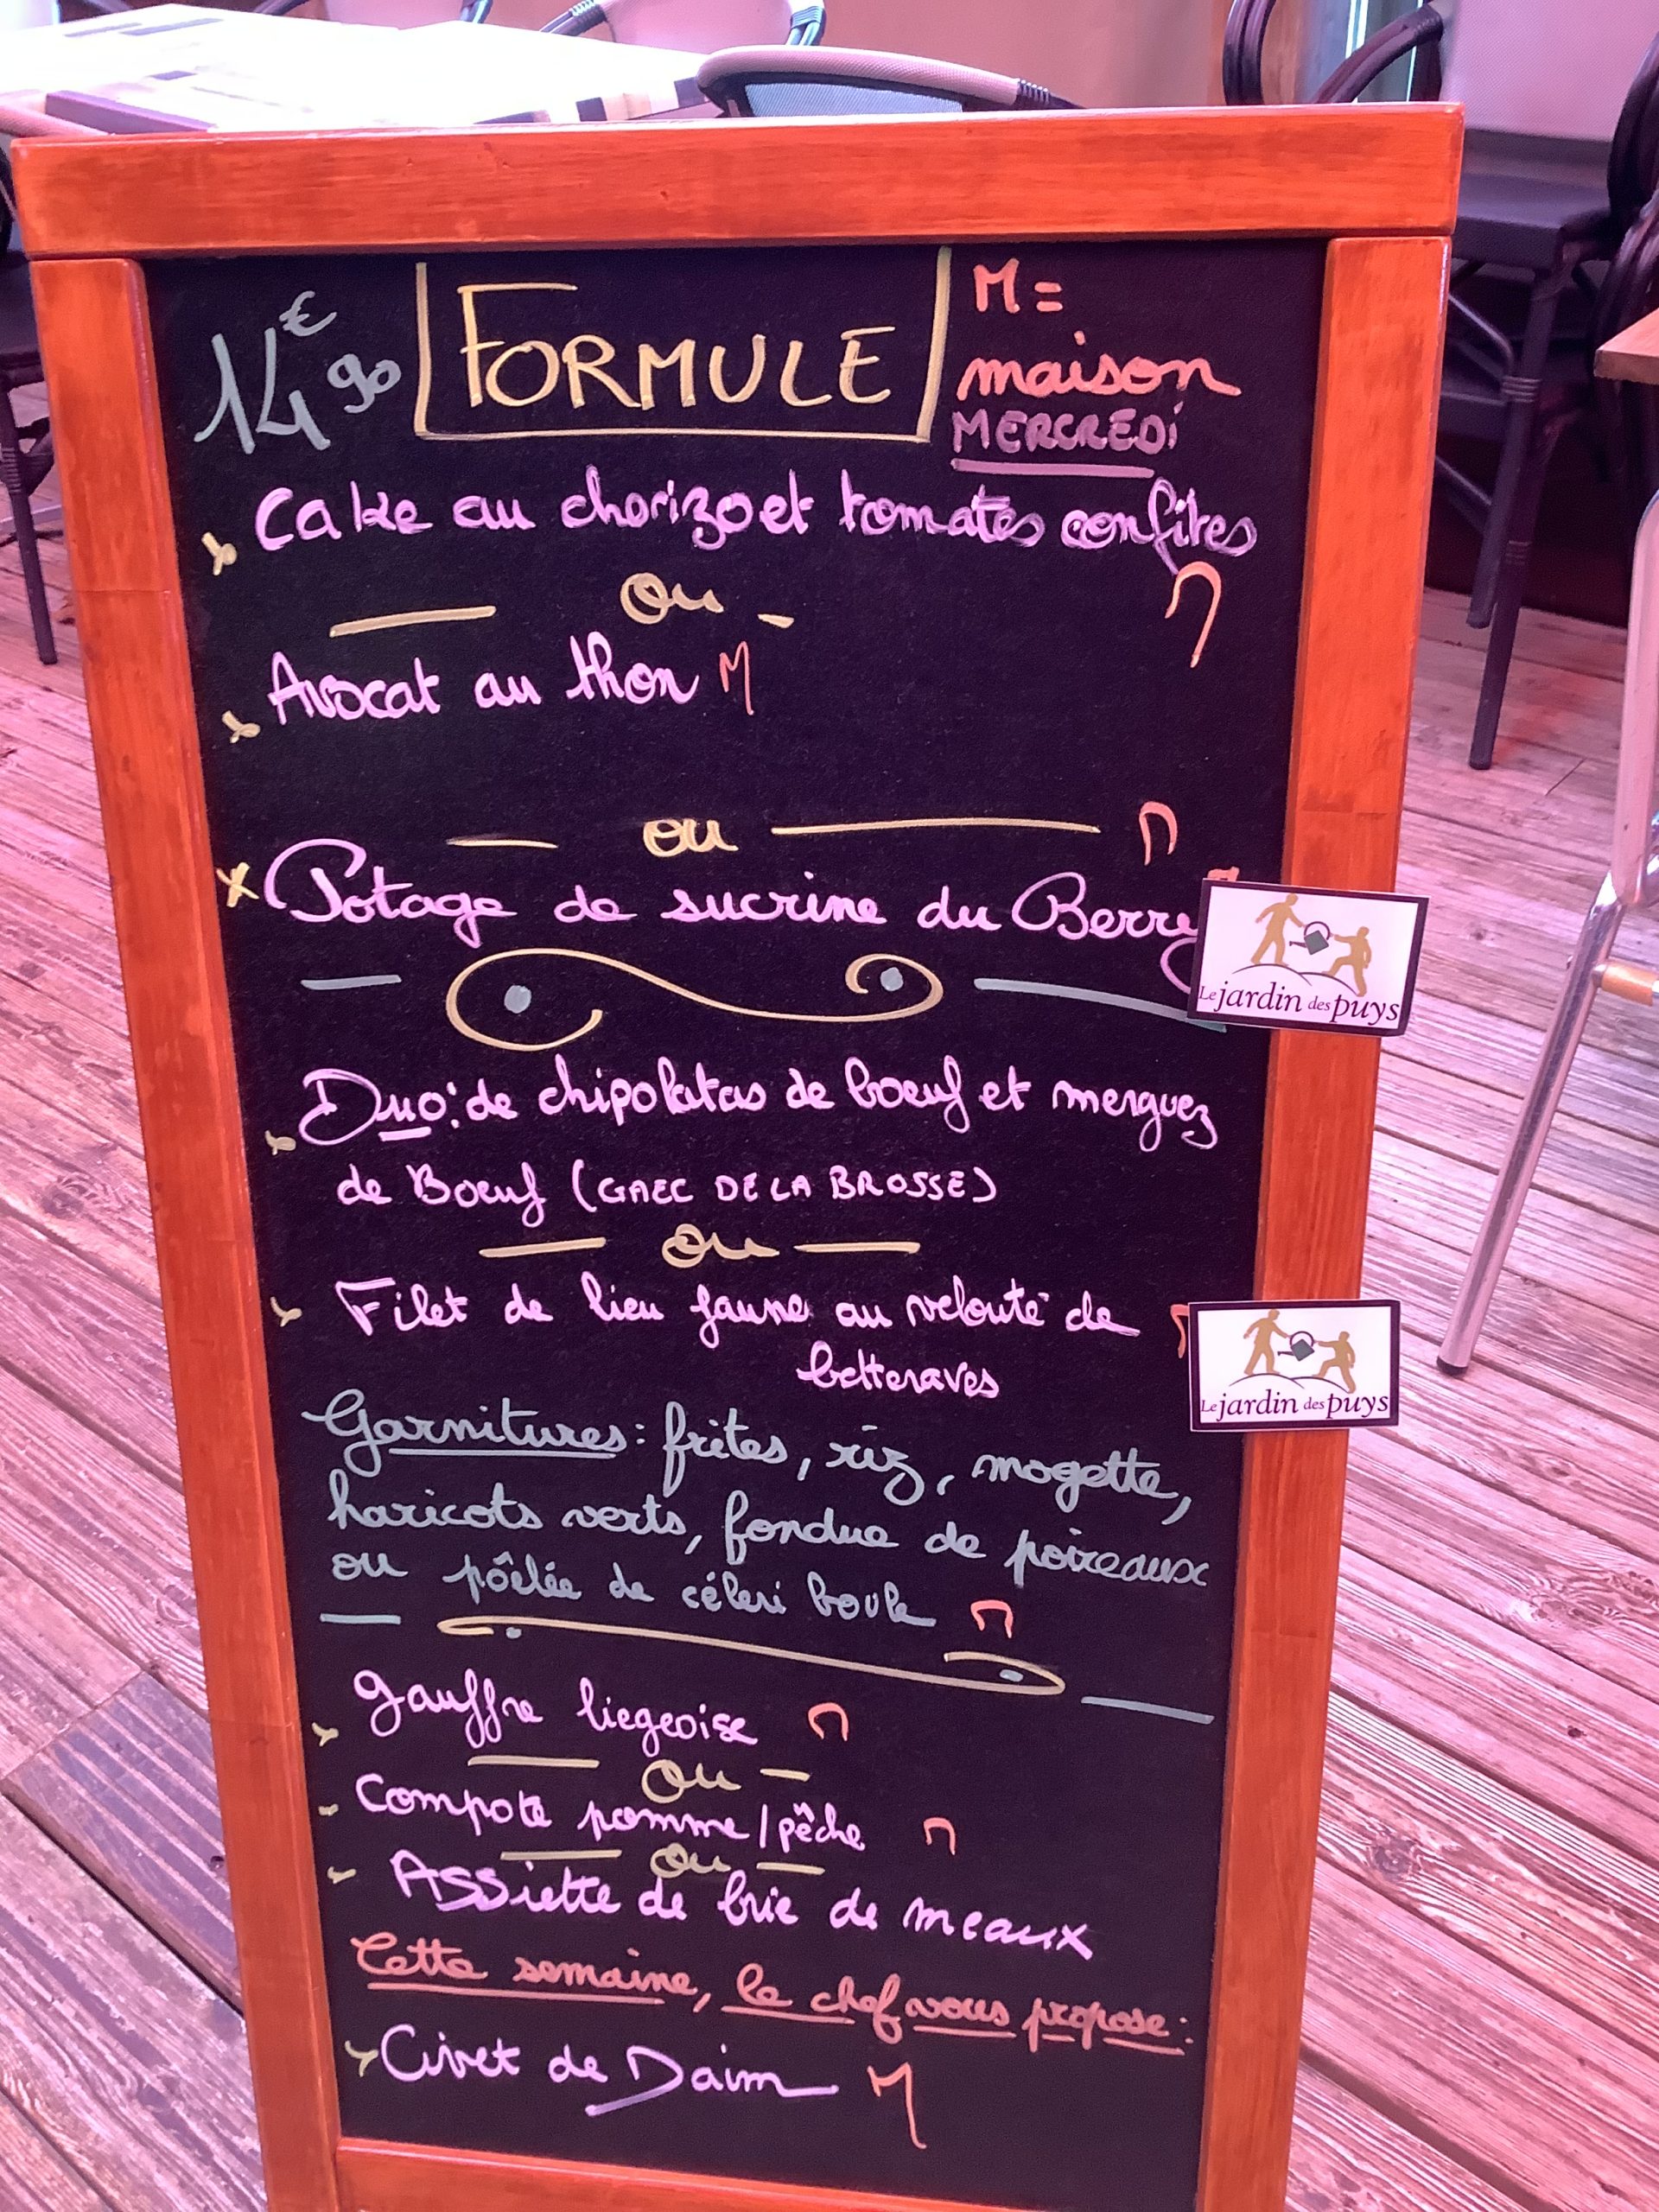 14€90 FORMULE M =
maison
MERCREDi
Cake au chorizo et tomates confites
M
Ou
Avocat au thon M
ou M
Potage de sucrine du Berry
Le jardin des puys
Duo: de chipolatas de boeuf et merguez
de Boeuf (GAEC DE LA BROSSE)
Ou
Filet de lieu jaune au velouté de M
betteraves
Le jardin des puys
Garnitures: frites, riz, mogette,
haricots verts, fondue de poireaux
ou pôelée de céleri boule M
Gauffre liegeoise M
Ou
Compote pomme/pêche M
Ou
Assiette de brie de meaux
Cette semaine, le chef vous propose:
Civet de Daim M